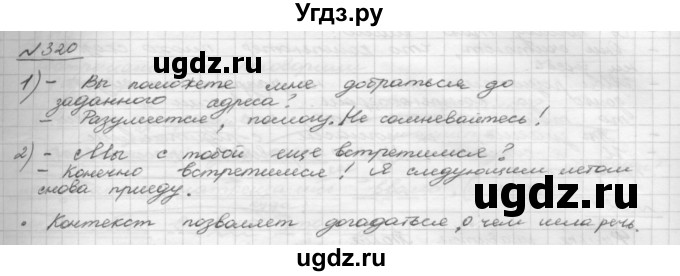 Угдз.ру
№320
1) - Вы поможете мне добраться до
заданного адреса?
- Разумеется, помогу. Не сомневайтесь!
2) - Мы с тобой еще встретимся?
- Конечно встретимся! Я следующим летом
снова приеду.
• Контекст позволяет догадаться, о чем шла речь.
ugdz.ru
ugdz.ru
ugdz.ru
ugdz.ru
ugdz.ru
ugdz.ru